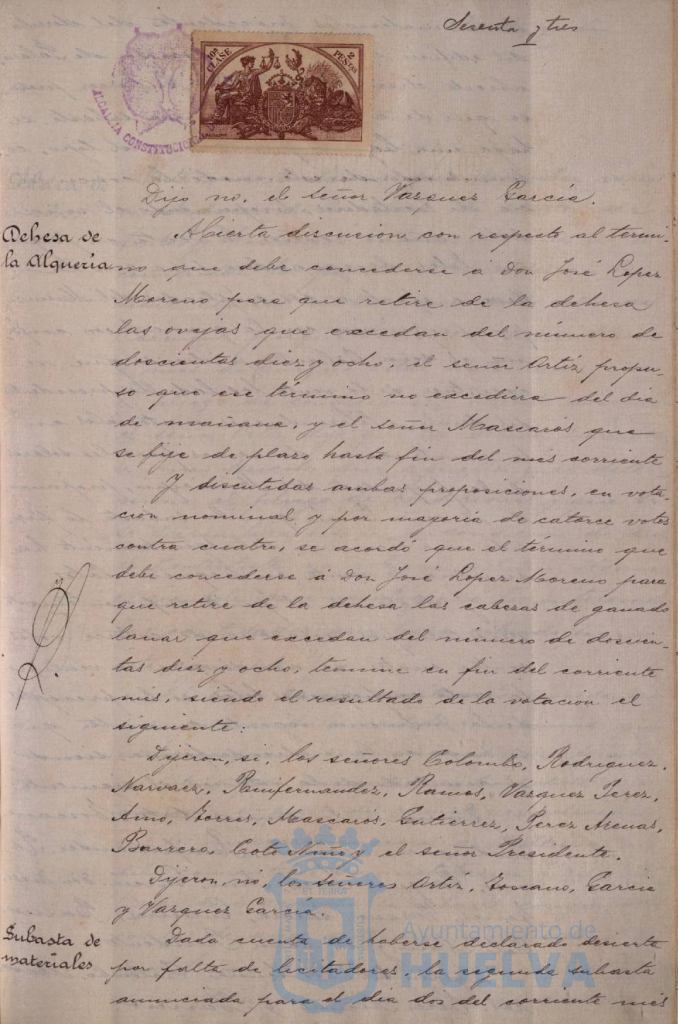 Sesenta y tres
10ª CLASE
2 PESETAS
ALCALDIA CONSTITUCIONAL
Dijo no, el señor Vazquez García.
Dehesa de
la Alquería
Abierta discusión con respecto al termi-
no que debe concederse á Don José Lopez
Moreno para que retire de la dehesa
las ovejas que excedan del número de
doscientas diez y ocho, el señor Ortíz propu-
so que ese término no excediera del dia
de mañana, y el señor Mascarós que
se fije de plazo hasta fin del més corriente
Y discutidas ambas proposiciones, en vota-
ción nominal y por mayoría de catorce votos
contra cuatro, se acordó que el término que
debe concederse á Don José Lopez Moreno para
que retire de la dehesa las cabezas de ganado
lanar que excedan del número de doscien-
tas diez y ocho, termine en fin del corriente
més, siendo el resultado de la votación el
siguiente:
Dijeron, si, los señores Colombo, Rodriguez,
Narvaez, Ramos, Vázquez Perez,
Amo, Torres, Mascarós, Gutierrez, Perez Arenas,
Barrero, Coto Niño y el señor Presidente.
Dijeron, nó, los señores Ortíz, Toscano, García
y Vazquez García.
Subasta de
materiales
Dada cuenta de haberse declarado desierta
por falta de licitadores, la segunda subasta
anunciada para el dia dos del corriente més
Ayuntamiento de
HUELVA